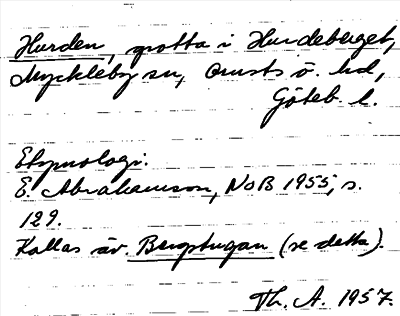 Hurden, grotta i Hurdeberget,
Myckleby sn, Orusts ö. hd,
Göteb. l.
Etymologi.
E. Abrahamson, NoB 1955, s.
129.
Kallas äv. Bergstugan (se detta).
Th. A. 1957.